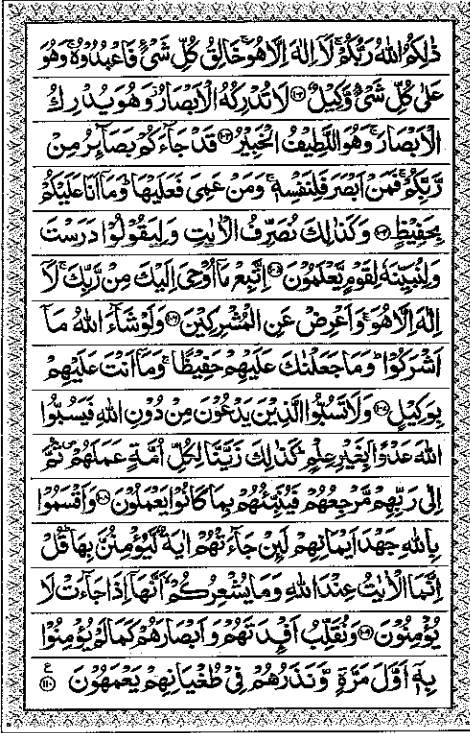 ذٰلِكُمُ اللّٰهُ رَبُّكُمْ ۚ لَاۤ اِلٰهَ اِلَّا هُوَ ۚ خَالِقُ كُلِّ شَیْءٍ فَاعْبُدُوْهُ ۚ وَهُوَ
عَلٰی كُلِّ شَیْءٍ وَّكِیْلٌ ۝۱۰۲ لَا تُدْرِكُهُ الْاَبْصَارُ ؗ وَهُوَ یُدْرِكُ
الْاَبْصَارَ ۚ وَهُوَ اللَّطِیْفُ الْخَبِیْرُ ۝۱۰۳ قَدْ جَآءَكُمْ بَصَآىِٕرُ مِنْ
رَّبِّكُمْ ۚ فَمَنْ اَبْصَرَ فَلِنَفْسِهٖ ۚ وَمَنْ عَمِیَ فَعَلَیْهَا ؕ وَمَاۤ اَنَا عَلَیْكُمْ
بِحَفِیْظٍ ۝۱۰۴ وَكَذٰلِكَ نُصَرِّفُ الْاٰیٰتِ وَلِیَقُوْلُوْا دَرَسْتَ
وَلِنُبَیِّنَهٗ لِقَوْمٍ یَّعْلَمُوْنَ ۝۱۰۵ اِتَّبِعْ مَاۤ اُوْحِیَ اِلَیْكَ مِنْ رَّبِّكَ ۚ لَاۤ
اِلٰهَ اِلَّا هُوَ ۚ وَاَعْرِضْ عَنِ الْمُشْرِكِیْنَ ۝۱۰۶ وَلَوْ شَآءَ اللّٰهُ مَاۤ
اَشْرَكُوْا ؕ وَمَا جَعَلْنٰكَ عَلَیْهِمْ حَفِیْظًا ۚ وَمَاۤ اَنْتَ عَلَیْهِمْ
بِوَكِیْلٍ ۝۱۰۷ وَلَا تَسُبُّوا الَّذِیْنَ یَدْعُوْنَ مِنْ دُوْنِ اللّٰهِ فَیَسُبُّوا
اللّٰهَ عَدْوًۢا بِغَیْرِ عِلْمٍ ؕ كَذٰلِكَ زَیَّنَّا لِكُلِّ اُمَّةٍ عَمَلَهُمْ ۪ ثُمَّ
اِلٰی رَبِّهِمْ مَّرْجِعُهُمْ فَیُنَبِّئُهُمْ بِمَا كَانُوْا یَعْمَلُوْنَ ۝۱۰۸ وَاَقْسَمُوْا
بِاللّٰهِ جَهْدَ اَیْمَانِهِمْ لَىِٕنْ جَآءَتْهُمْ اٰیَةٌ لَّیُؤْمِنُنَّ بِهَا ؕ قُلْ
اِنَّمَا الْاٰیٰتُ عِنْدَ اللّٰهِ وَمَا یُشْعِرُكُمْ ۙ اَنَّهَاۤ اِذَا جَآءَتْ لَا
یُؤْمِنُوْنَ ۝۱۰۹ وَنُقَلِّبُ اَفْـِٕدَتَهُمْ وَاَبْصَارَهُمْ كَمَا لَمْ یُؤْمِنُوْا
بِهٖۤ اَوَّلَ مَرَّةٍ وَّنَذَرُهُمْ فِیْ طُغْیَانِهِمْ یَعْمَهُوْنَ ۝۱۱۰ ع